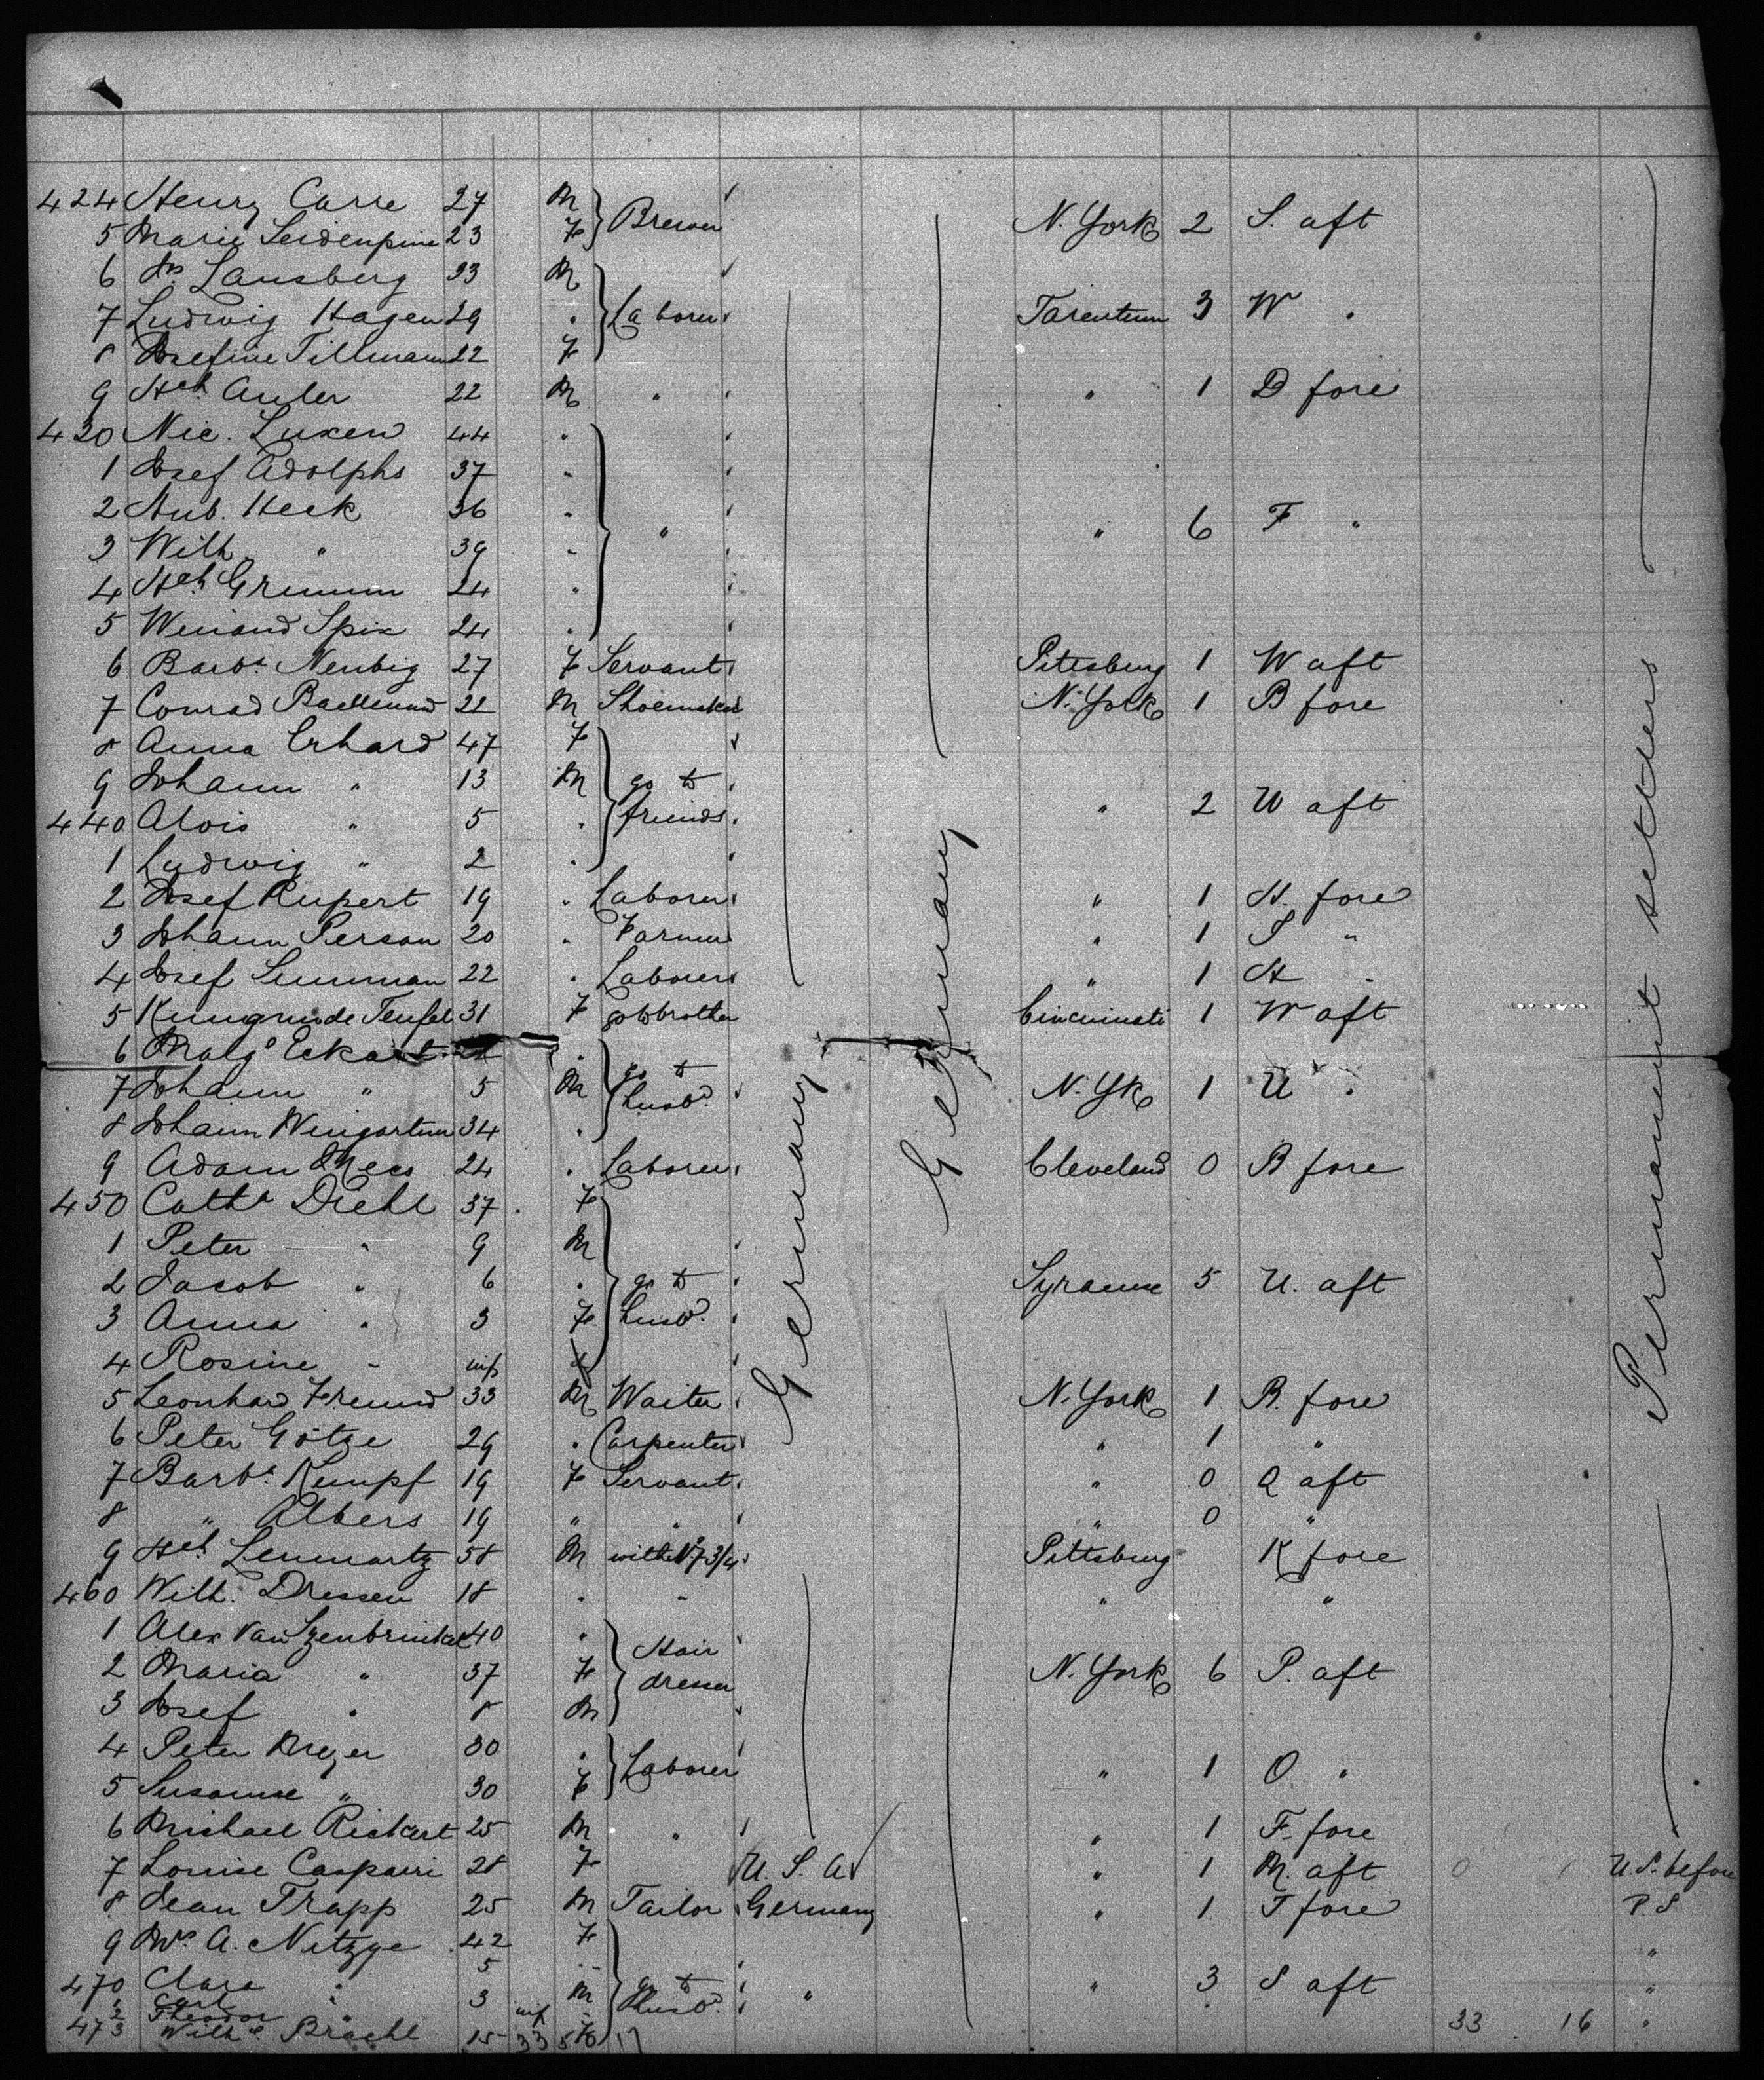 424 Henry Carre 27 M Brewer N. York 2 S. aft
5 Marie Seidenpine 23 F
6 Js. Lansberg 33 M
7 Ludwig Hagen 29 " Laborer Tarentum 3 W "
8 Josefine Tillmann 22 F
9 Hch. Auler 22 M " " 1 D fore
430 Nic. Luxen 44 "
1 Josef Adolphs 37 "
2 Hub. Heck 36 " " " 6 F "
3 Wilh. " 39 "
4 Hch. Grumm 24 "
5 Weinand Spix 24 "
6 Barba. Neubig 27 F Servant Pittsburg 1 W aft
7 Conrad 22 M Shoemaker N. York 1 B fore
8 Anna Erhard 47 F
9 Johann " 13 M go to
440 Alois " 5 " friends " 2 U aft
1 Ludwig " 2 "
2 Josef Rupert 19 " Laborer " 1 H. fore
3 Johann Person 20 " Farmer " 1 S "
4 Josef 22 " Laborer " 1 H "
5 Kungunde Teufel 31 F go to brother Cincinnati 1 W aft
6 Malga Eckart "
7 Johann " 5 M go to husbd. N. Yk 1 U "
8 Johann Weingartner 34 "
9 Adam Mees 24 " Laborer Cleveland 0 B fore
450 Catha Diehl 37 F
1 Peter " 9 M
2 Jacob " 6 " go to Syracuse 5 U. aft
3 Anna " 3 F husbd.
4 Rosine " inf
5 Leonhard Freund 33 M Waiter N. York 1 B. fore
6 Peter Götze 29 " Carpenter " 1 "
7 Barba. Kempf 19 F Servant " 0 Q aft
8 " Albers 19 " " " 0 "
9 Hch. Lennartz 58 M with N. 73/4 Pittsburg K fore
460 Wilh. Dressen 18 " " " "
1 Alex 40 " Hair
2 Maria " 37 F dresser N. York 6 P. aft
3 Josef " 8 M
4 Peter Meyer 30 " Laborer " 1 O "
5 Susanne " 30 F
6 Michael Rickert 25 M " " 1 F. fore
7 Louise Caspari 28 F U. S. A " 1 M. aft 0 1 U.S. before
8 Jean Trapp 25 M Tailor Germany " 1 T fore P. S
9 Mrs A. Nitzge 42 F "
470 Clara " 5 " go to " " 3 S aft "
" Carl " 3 M husbd.
2 Theodor " inf "
473 Wilhe Braehl 15 33 5 17 33 16 "
Germany
Germany
Permanent settlers